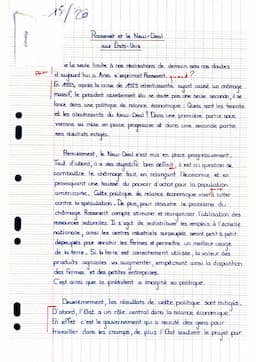 15/20
Roosevelt et le New-Deal
aux États-Unis
« la seule limite à nos réalisations de demain sera nos doutes
d'aujourd'hui ». Ainsi s'exprimait Roosevelt. quand?
En 1933, après la crise de 1929 retentissante, ayant causé un chômage
massif, le président nouvellement élu ne doute pas une seule seconde, il se
lance dans une politique de relance économique : Quels sont les tenants
et les aboutissants du New-Deal ? Dans une première partie nous
verrons sa mise en place progressive et dans une seconde partie,
ses résultats mitigés.
Premièrement, le New-Deal s'est mis en place progressivement.
Tout d'abord, il a des objectifs bien définit, il est ici question de
combattre le chômage tout en relançant l'économie, et en
provoquant une hausse du pouvoir d'achat pour la population
américaine. Cette politique de relance économique visait lutter
contre la spéculation. De plus, pour résoudre le problème du
chômage Roosevelt compte stimuler et réorganiser l'utilisation des
ressources naturelles. Il s'agit de redistribuer les emplois à l'échelle
nationale, ainsi les centres industriels surpeuplés seront petit à petit
dépeuplés pour enrichir les fermes et permettre un meilleur usage
de la terre. Si la terre est correctement utilisée, la valeur des
produits agricoles va augmenter, empêchant ainsi la disparition
des fermes et des petites entreprises.
C'est ainsi que le président a imaginé sa politique.
Deuxièmement, les résultats de cette politique sont mitigés.
D'abord, l'État a un rôle central dans la relance économique.
En effet c'est le gouvernement qui a recruté des gens pour
travailler dans les champs, de plus l'État soutient le projet par